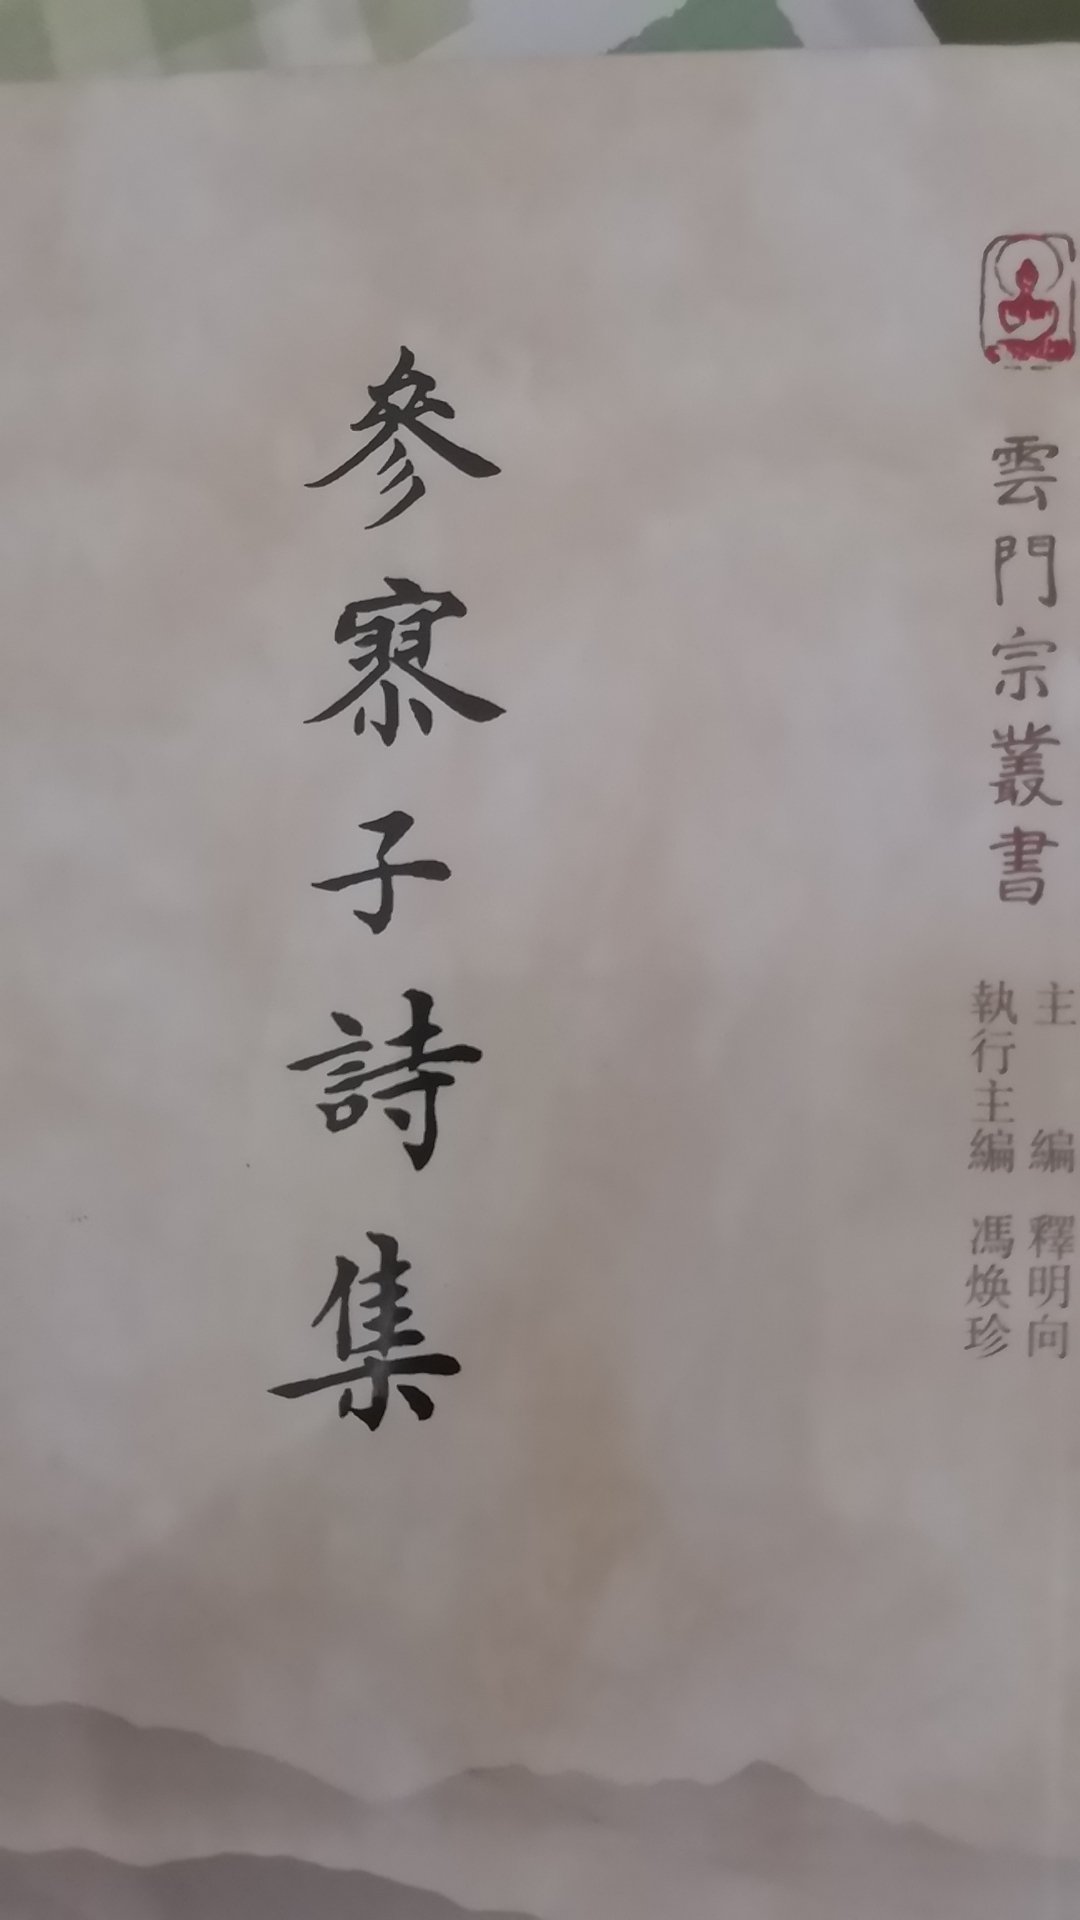 雲門宗叢書
主編 釋明向
執行主編 馮焕珍
參寥子詩集